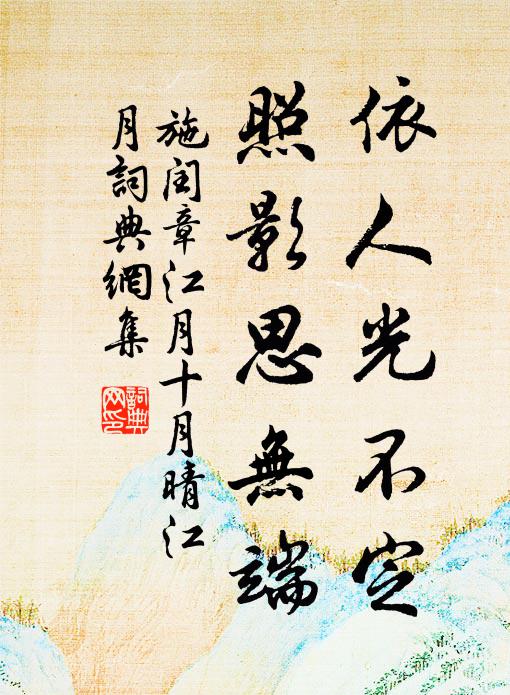 依人光不定
照影思無端
施闰章江月十月晴江
月詞典網集
詞典
网印